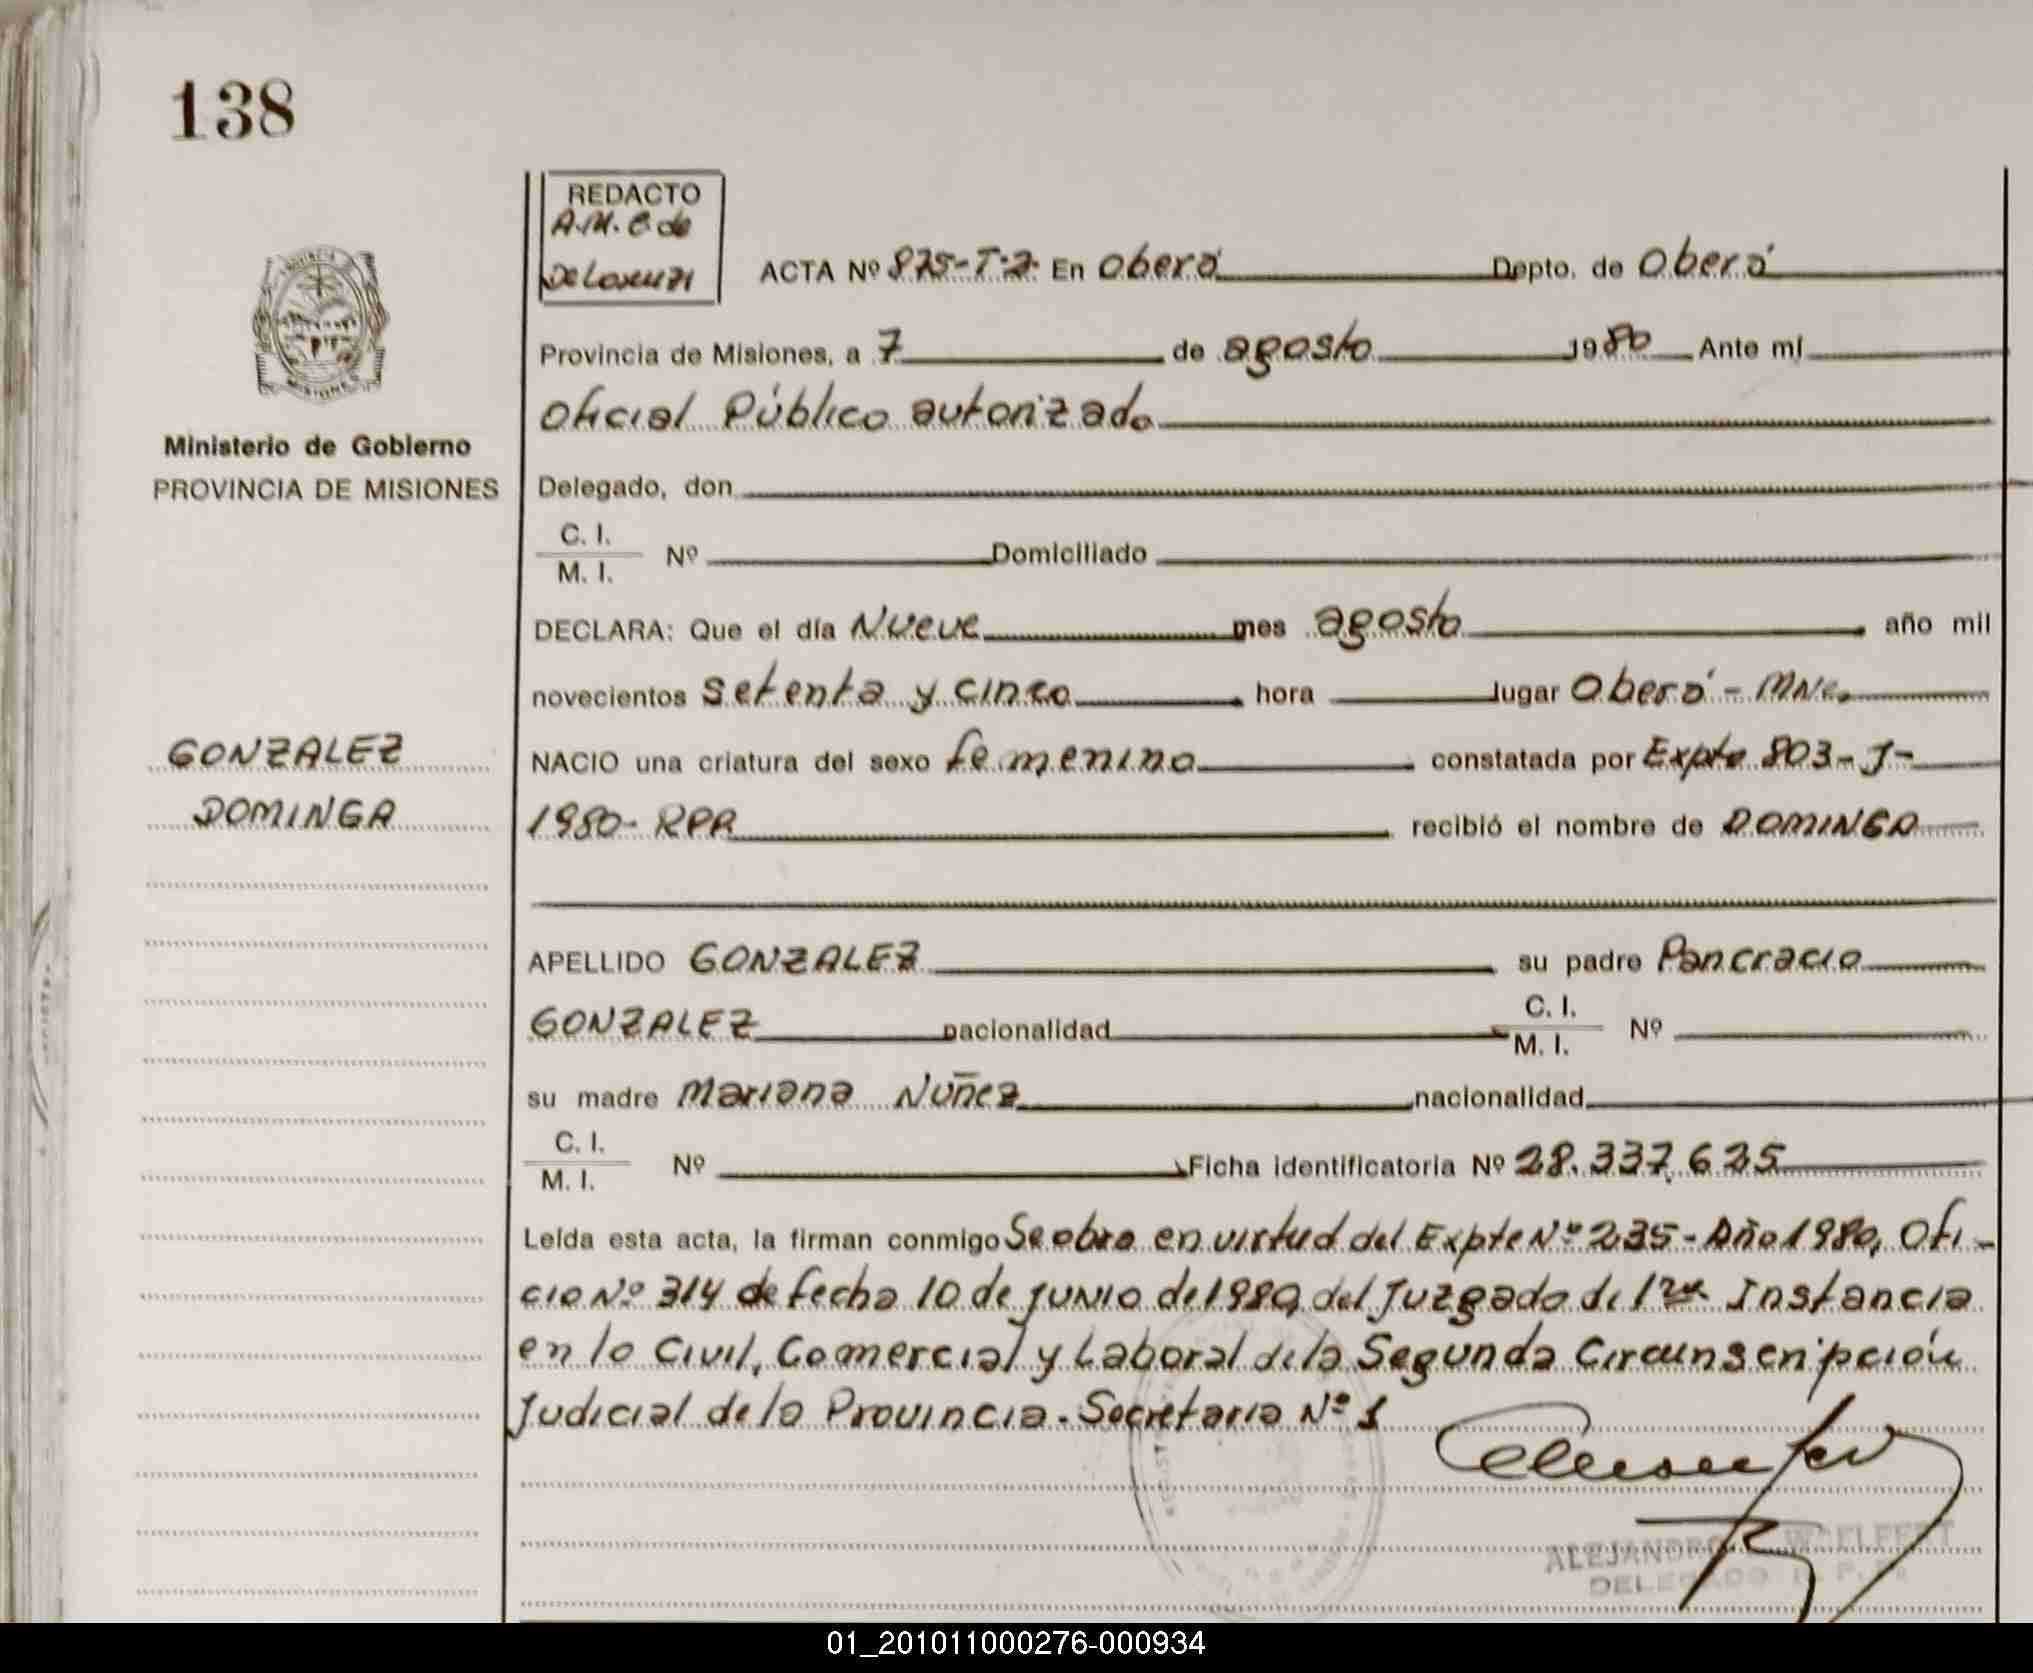 138
REDACTO
A.M.C de
De Lorenzi
ACTA Nº 875-T-2- En Oberá Depto. de Oberá
Provincia de Misiones, a 7 de agosto 1980 Ante mí
Oficial Público autorizado
Ministerio de Gobierno
PROVINCIA DE MISIONES
Delegado, don
C. I.
M. I.
Nº Domiciliado
DECLARA: Que el día Nueve mes agosto año mil
novecientos setenta y cinco hora lugar Oberá - Mnes.
GONZALEZ
DOMINGA
NACIO una criatura del sexo femenino constatada por Expte 803-J-
1980- RPR recibió el nombre de DOMINGA
APELLIDO GONZALEZ su padre Pancracio
GONZALEZ nacionalidad C. I. M. I. Nº
su madre Mariana Núñez nacionalidad
C. I.
M. I.
Nº Ficha identificatoria Nº 28.337.625
Leída esta acta, la firman conmigo Se obra en virtud del Expte Nº 235- Año 1980, Ofi-
cio Nº 314 de fecha 10 de junio de 1980, del Juzgado de 1ra Instancia
en lo Civil, Comercial y Laboral de la Segunda Circunscripción
Judicial de la Provincia. Secretaria Nº 1
ALEJANDRO
DELEGADO R. P. P.
01_201011000276-000934